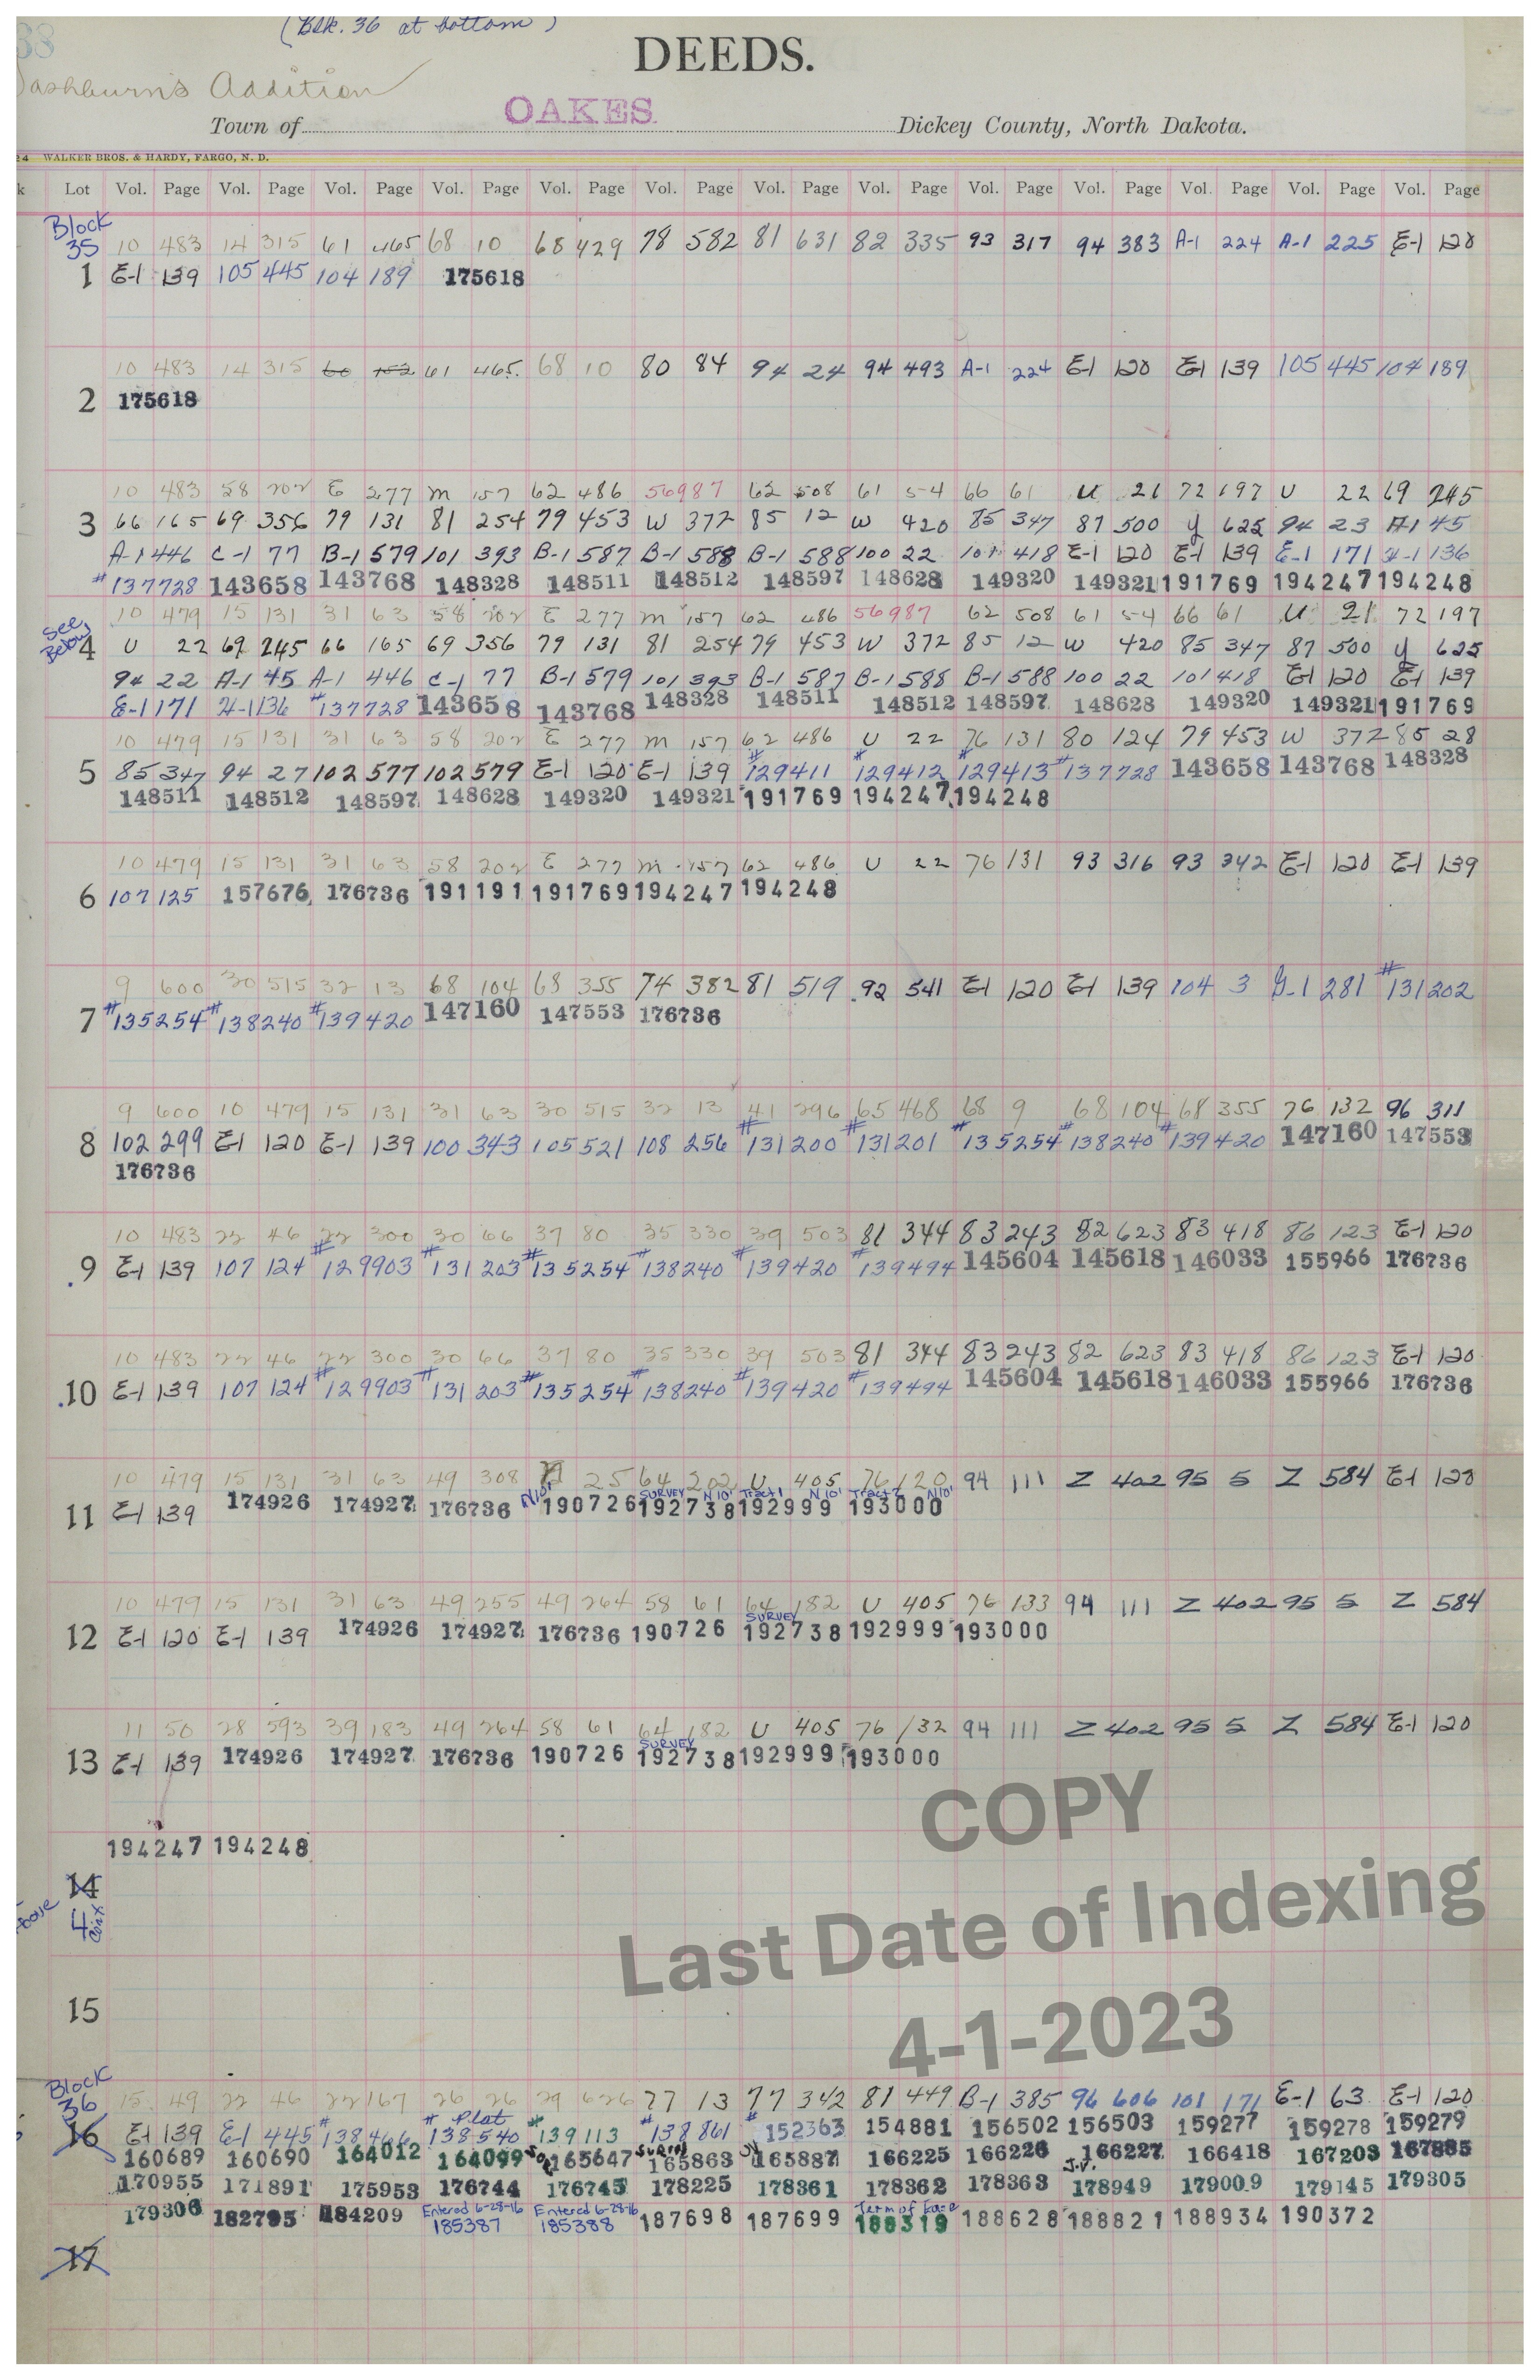 38
(Blk. 36 at bottom)
DEEDS.
Washburn's Addition
Town of OAKES Dickey County, North Dakota.
24 WALKER BROS. & HARDY, FARGO, N. D.
k Lot Vol. Page Vol. Page Vol. Page Vol. Page Vol. Page Vol. Page Vol. Page Vol. Page Vol. Page Vol. Page Vol. Page Vol. Page Vol. Page
Block
35 10 483 14 315 61 465 68 10 68 429 78 582 81 631 82 335 93 317 94 383 A-1 224 A-1 225 E-1 120
1 E-1 139 105 445 104 189 175618
10 483 14 315 60 152 61 465 68 10 80 84 94 24 94 493 A-1 224 E-1 120 E-1 139 105 445 104 189
2 175618
10 483 58 202 E 277 M 157 62 486 56987 62 508 61 54 66 61 U 21 72 197 U 22 69 245
3 66 165 69 356 79 131 81 254 79 453 W 372 85 12 W 420 85 347 87 500 Y 625 94 23 A-1 45
A-1 446 C-1 77 B-1 579 101 393 B-1 587 B-1 588 B-1 588 100 22 101 418 E-1 120 E-1 139 E-1 171 H-1 136
#137728 143658 143768 148328 148511 148512 148597 148628 149320 149321 191769 194247 194248
10 479 15 131 31 63 58 202 E 277 M 157 62 486 56987 62 508 61 54 66 61 U 21 72 197
See Below 4 U 22 69 245 66 165 69 356 79 131 81 254 79 453 W 372 85 12 W 420 85 347 87 500 Y 625
94 22 A-1 45 A-1 446 C-1 77 B-1 579 101 393 B-1 587 B-1 588 B-1 588 100 22 101 418 E-1 120 E-1 139
E-1 171 H-1 136 #137728 143658 143768 148328 148511 148512 148597 148628 149320 149321 191769
10 479 15 131 31 63 58 202 E 277 M 157 62 486 U 22 76 131 80 124 79 453 W 372 85 28
5 85 347 94 27 102 577 102 579 E-1 120 E-1 139 #129411 #129412 #129413 #137728 143658 143768 148328
148511 148512 148597 148628 149320 149321 191769 194247 194248
10 479 15 131 31 63 58 202 E 277 M 157 62 486 U 22 76 131 93 316 93 342 E-1 120 E-1 139
6 107 125 157676 176736 191191 191769 194247 194248
9 600 30 515 32 13 68 104 68 355 74 382 81 519 92 541 E-1 120 E-1 139 104 3 G-1 281 #131202
7 #135254 #138240 #139420 147160 147553 176736
9 600 10 479 15 131 31 63 30 515 32 13 41 296 65 468 68 9 68 104 68 355 76 132 96 311
8 102 299 E-1 120 E-1 139 100 343 105 521 108 256 #131200 #131201 #135254 #138240 #139420 147160 147553
176736
10 483 22 46 22 300 30 66 37 80 35 330 39 503 81 344 83 243 82 623 83 418 86 123 E-1 120
.9 E-1 139 107 124 #129903 #131203 #135254 #138240 #139420 #139494 145604 145618 146033 155966 176736
10 483 22 46 22 300 30 66 37 80 35 330 39 503 81 344 83 243 82 623 83 418 86 123 E-1 120
.10 E-1 139 107 124 #129903 #131203 #135254 #138240 #139420 #139494 145604 145618 146033 155966 176736
10 479 15 131 31 63 49 308 25 64 202 U 405 76 120 94 111 Z 402 95 5 Z 584 E-1 120
N101' SURVEY N 101' Tract 1 N 101' Tract 2 N101'
11 E-1 139 174926 174927 176736 190726 192738 192999 193000
10 479 15 131 31 63 49 255 49 264 58 61 64 182 U 405 76 133 94 111 Z 402 95 5 Z 584
SURVEY
12 E-1 120 E-1 139 174926 174927 176736 190726 192738 192999 193000
11 50 28 593 39 183 49 264 58 61 64 182 U 405 76 132 94 111 Z 402 95 5 Z 584 E-1 120
SURVEY
13 E-1 139 174926 174927 176736 190726 192738 192999 193000
COPY
194247 194248
14
Above 4 Con't
Last Date of Indexing
15
4-1-2023
Block
36 15 49 22 46 22 167 26 26 29 626 77 13 77 342 81 449 B-1 385 96 606 101 171 E-1 63 E-1 120
16 E-1 139 E-1 445 #138466 # Plat 138540 #139113 #138861 #152363 154881 156502 156503 159277 159278 159279
160689 160690 164012 164099 165647 Survey 165863 165887 166225 166226 166227 166418 167203 167885
170955 171891 175953 176744 176745 178225 178361 178362 178363 J.V. 178949 179009 179145 179305
Entered 6-28-16 Entered 6-28-16 Term of Ease
179306 182795 184209 185387 185388 187698 187699 188319 188628 188821 188934 190372
17